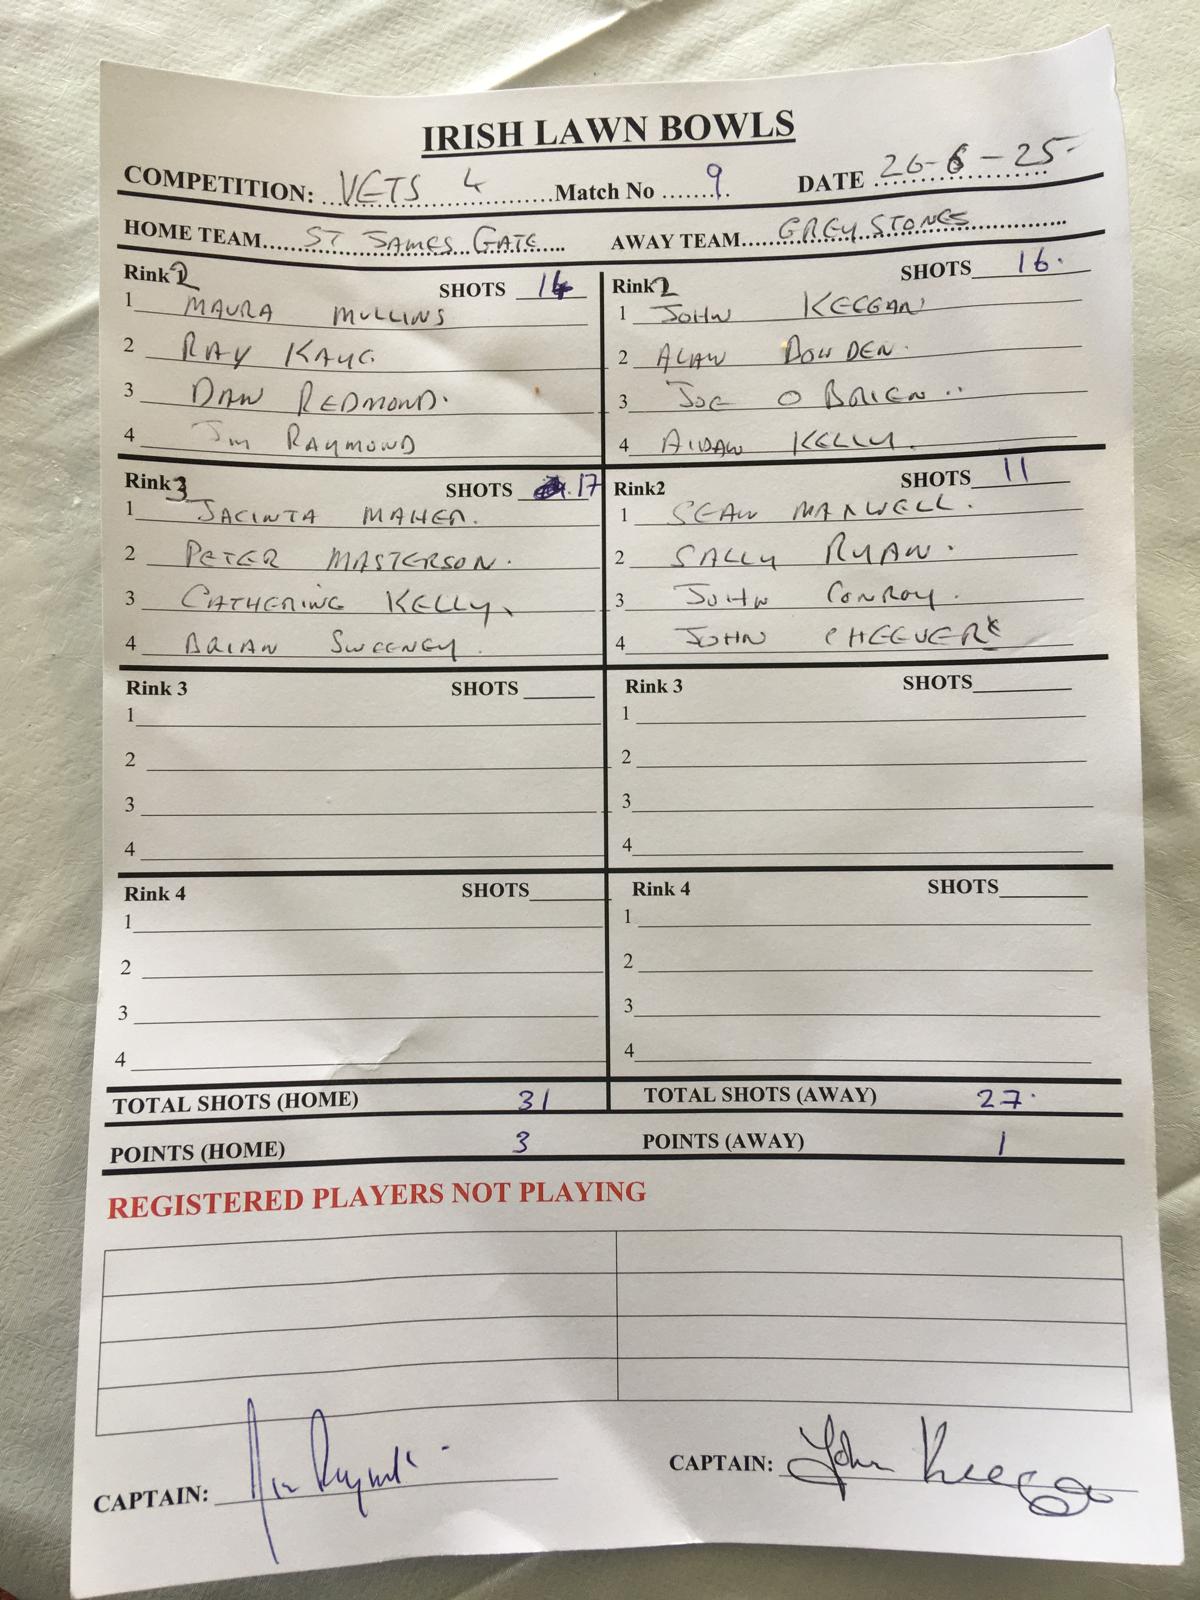 IRISH LAWN BOWLS
COMPETITION: VETS 4 Match No 9 DATE 26-6-25
HOME TEAM ST JAMES GATE AWAY TEAM GREYSTONES
Rink 2 SHOTS 14 Rink 2 SHOTS 16.
1 MAURA MULLINS 1 JOHN KEEGAN
2 RAY KAYE 2 ALAN DOWDEN.
3 DAN REDMOND. 3 JOE O BRIEN..
4 JIM RAYMOND 4 AIDAN KELLY.
Rink 3 SHOTS 17 Rink2 SHOTS 11
1 JACINTA MAHER. 1 SEAN MAXWELL.
2 PETER MASTERSON. 2 SALLY RYAN.
3 CATHERINE KELLY, 3 JOHN CONROY.
4 BRIAN SWEENEY. 4 JOHN CHEEVER
Rink 3 SHOTS Rink 3 SHOTS
1 1
2 2
3 3
4 4
Rink 4 SHOTS Rink 4 SHOTS
1 1
2 2
3 3
4 4
TOTAL SHOTS (HOME) 31 TOTAL SHOTS (AWAY) 27.
POINTS (HOME) 3 POINTS (AWAY) 1
REGISTERED PLAYERS NOT PLAYING
CAPTAIN: Jim Raymond CAPTAIN: John Keegan